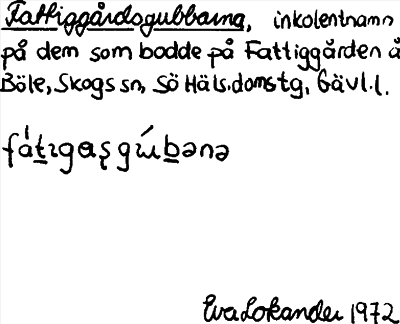 Fattiggårdsgubbarna, inkolentnamn
på dem som bodde på Fattiggården å
Böle, Skogs sn, Sö Häls.domstg, Gävl.l.
Eva Lokander 1972